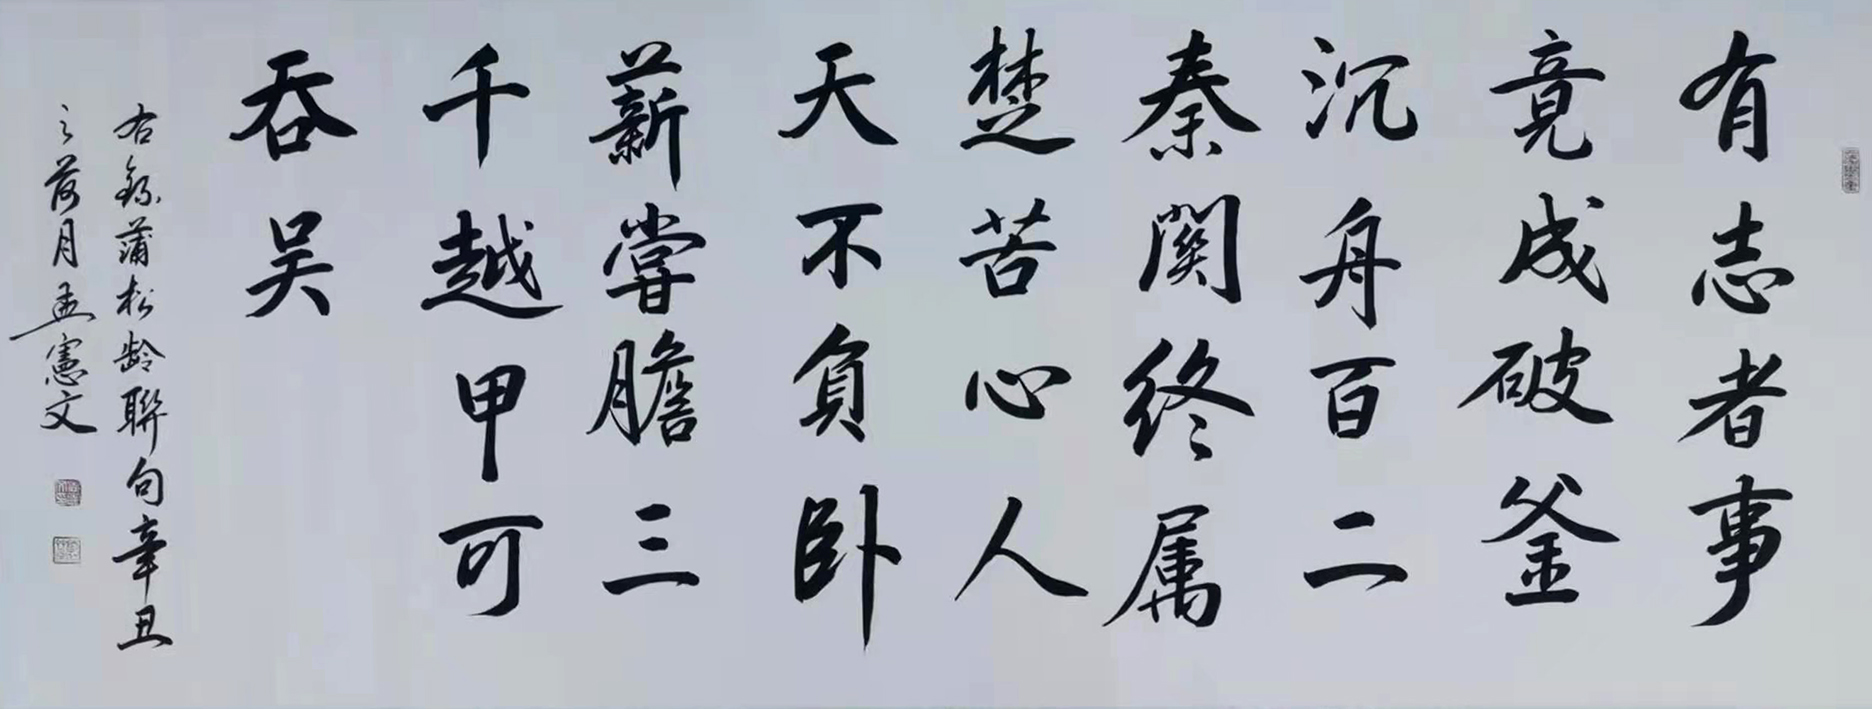 有志者事
竟成破釜
沉舟百二
秦関终属
楚苦心人
天不負卧
薪嘗膽三
千越甲可
吞吴
右録蒲松龄聯句辛丑
之荷月孟憲文